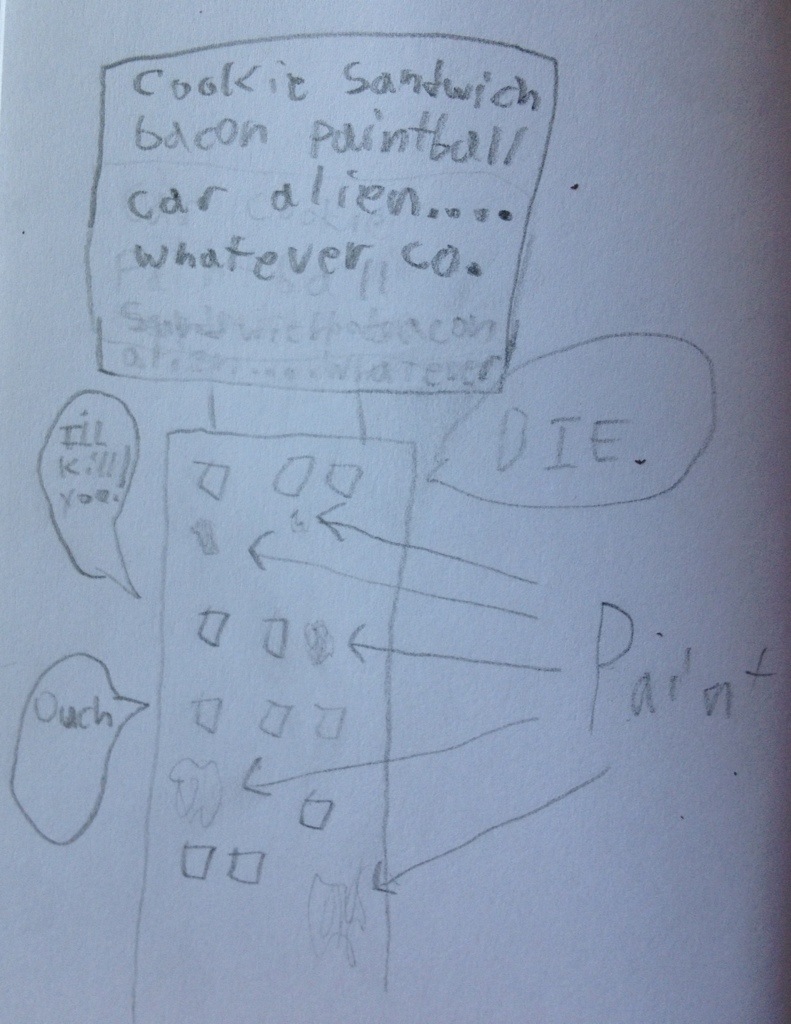 Cookie Sandwich
bacon paintball
car alien....
whatever co.
Sandwich bacon
alien.... whatever
DIE.
I'll
kill
yoo.
Ouch
Paint